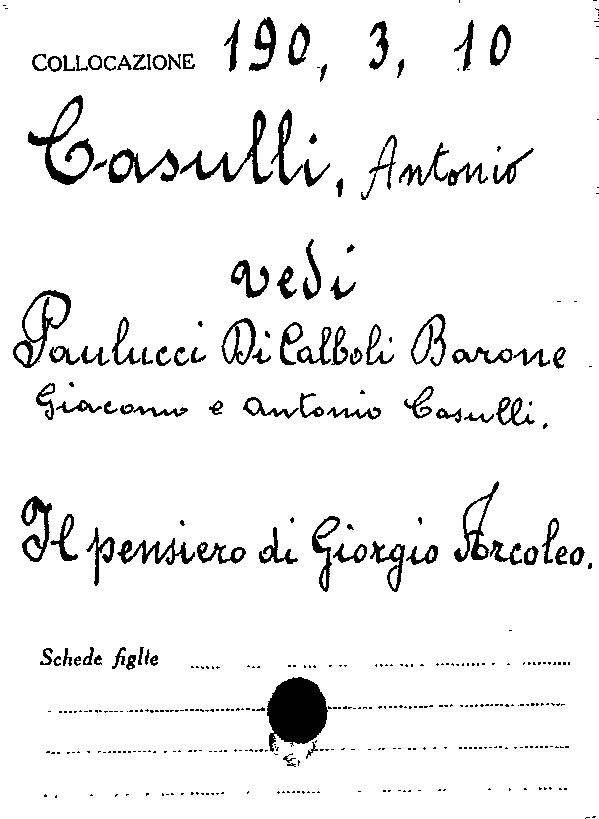 COLLOCAZIONE 190, 3, 10
Casulli, Antonio
vedi
Paulucci Di Calboli Barone
Giacomo e Antonio Casulli.
Il pensiero di Giorgio Arcoleo.
Schede figlte